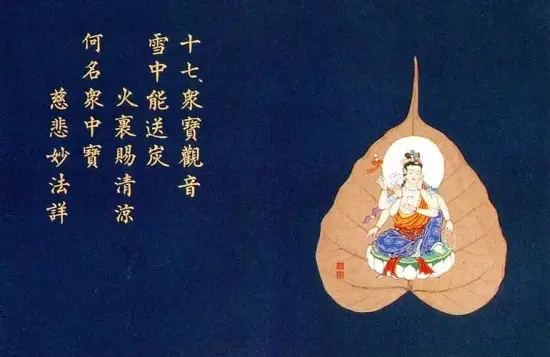 十七、眾寶觀音
雪中能送炭
火裏賜清涼
何名眾中寶
慈悲妙法詳